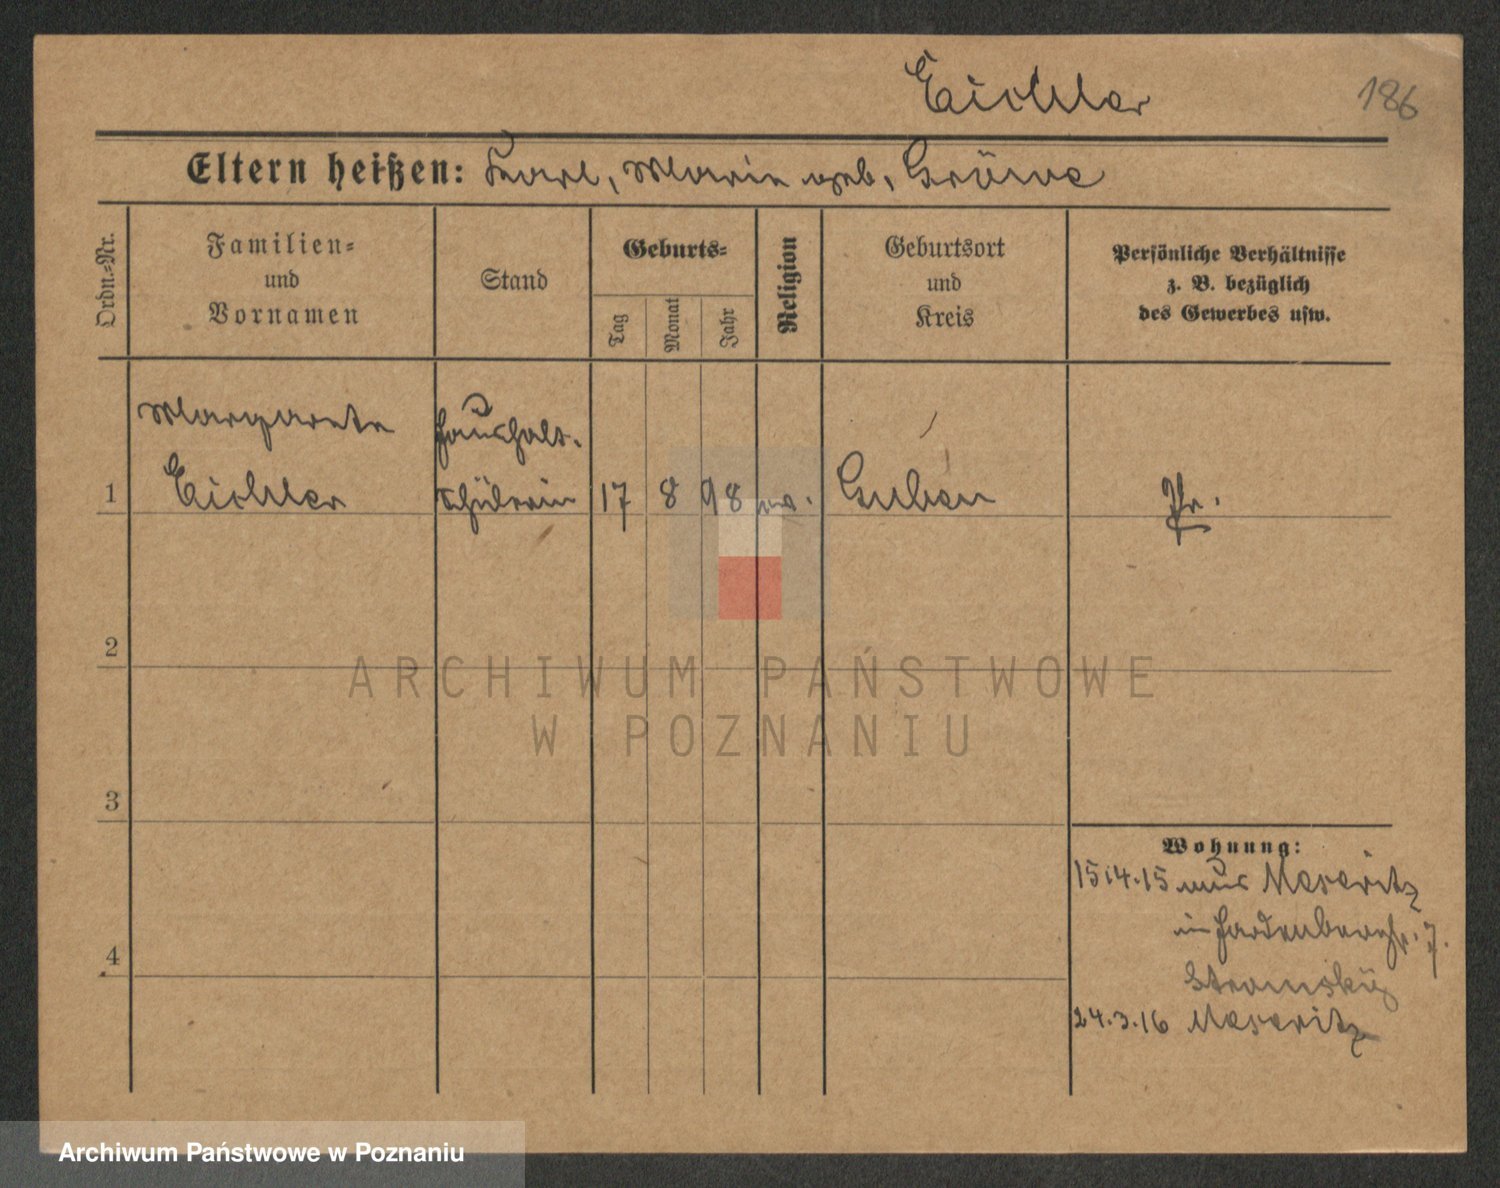 Eichler
186
Eltern heißen: Karl, Marie geb. Gröwe
Ordn.=Nr.
Familien=
und
Vornamen
Stand
Geburts=
Tag
Monat
Jahr
Religion
Geburtsort
und
Kreis
Persönliche Verhältnisse
z. B. bezüglich
des Gewerbes usw.
Margarete
Eichler
Haushalt-
schülerin
1
17
8
98
ev.
Guben
Pr.
2
3
4
Wohnung:
15.4.15 aus Meseritz
in Hardenbergstr. 7.
Stramsky
24.3.16 Meseritz
ARCHIWUM PAŃSTWOWE
W POZNANIU
Archiwum Państwowe w Poznaniu